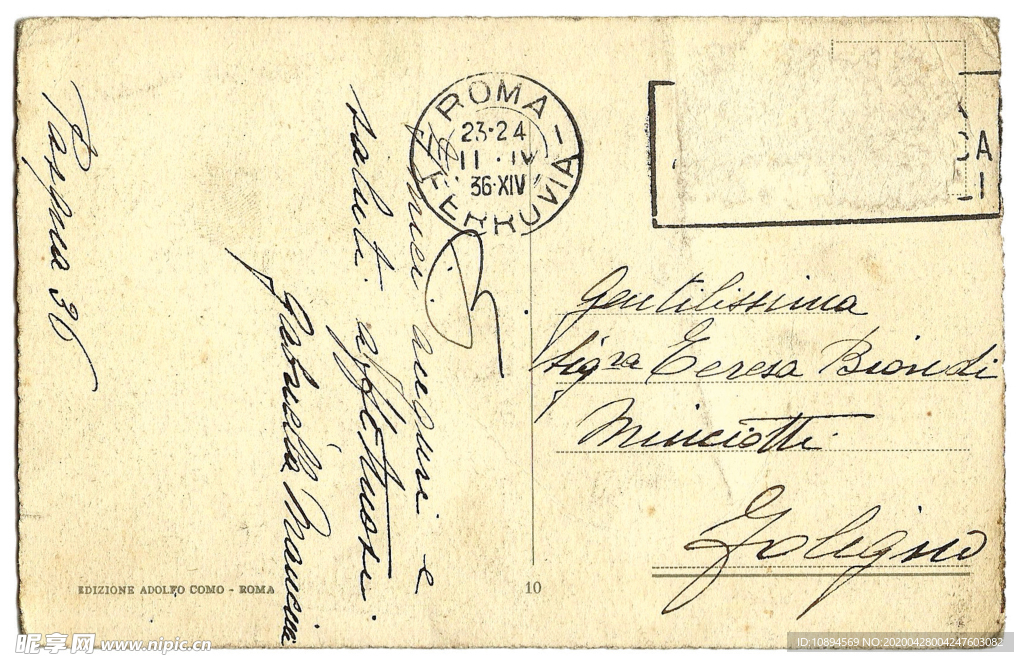 Pasqua 36
miei auguri e
saluti affettuosi
Gabriella
ROMA
23·24
11·IV
36·XIV
FERROVIA
CA
I
Gentilissima
Sigra Teresa Biondi
Minciotti
Foligno
EDIZIONE ADOLFO COMO - ROMA
10
昵享网 www.nipic.cn
ID:10894569 NO:20200428004247603082